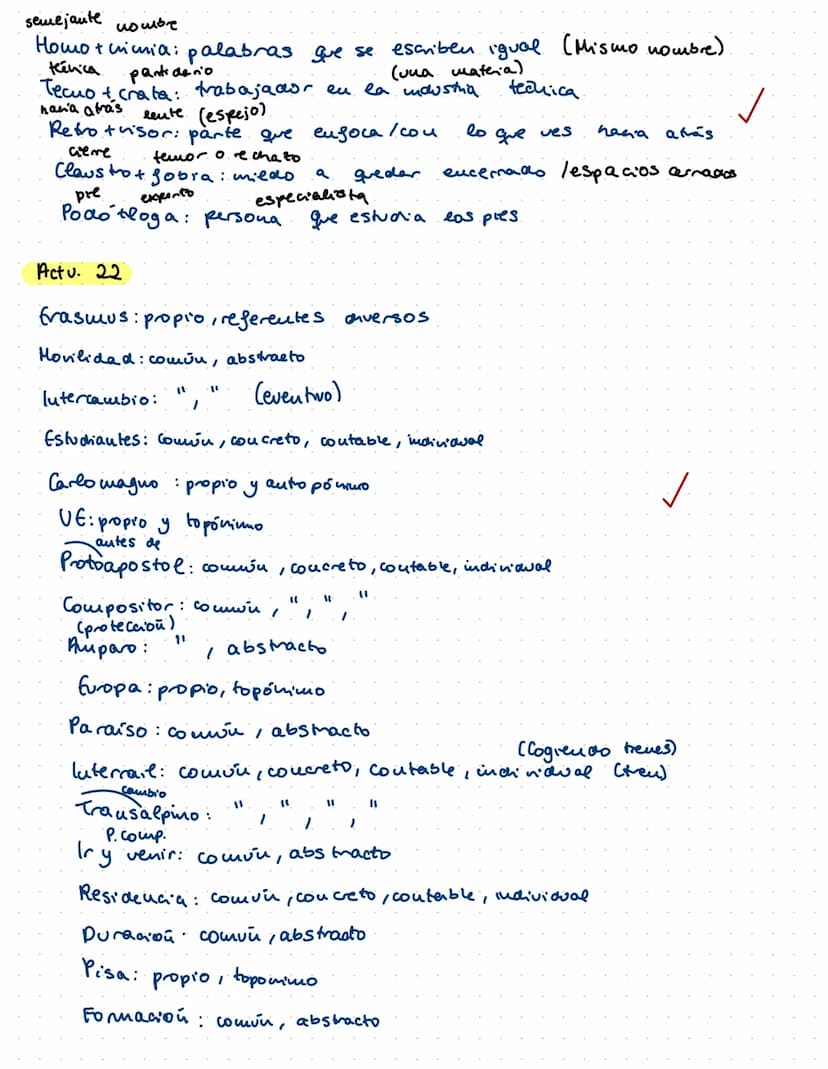 semejante nombre
Homo + nimia: palabras que se escriben igual (Mismo nombre)
técnica partidario (una materia)
Tecno + crata: trabajador en la industria técnica
hacia atrás lente (espejo)
Retro + visor: parte que enfoca/con lo que ves hacia atrás
cierre temor o rechazo
Claustro + fobra: miedo a quedar encerrado /espacios cerrados
pie experto especialista
Podó + loga: persona que estudia los pies
Actv. 22
Erasmus: propio, referentes diversos
Movilidad: común, abstracto
Intercambio: ", " (eventivo)
Estudiantes: común, concreto, contable, individual
Carlomagno: propio y antropónimo
UE: propio y topónimo
antes de
Protoapostol: común, concreto, contable, individual
Compositor: común, ", ", "
(protección)
Amparo: ", abstracto
Europa: propio, topónimo
Paraíso: común, abstracto
(Cogiendo trenes)
Interrail: común, concreto, contable, individual (tren)
cambio
Transalpino: ", ", ", "
P. comp.
Ir y venir: común, abstracto
Residencia: común, concreto, contable, individual
Duración: común, abstracto
Pisa: propio, toponimo
Formación: común, abstracto